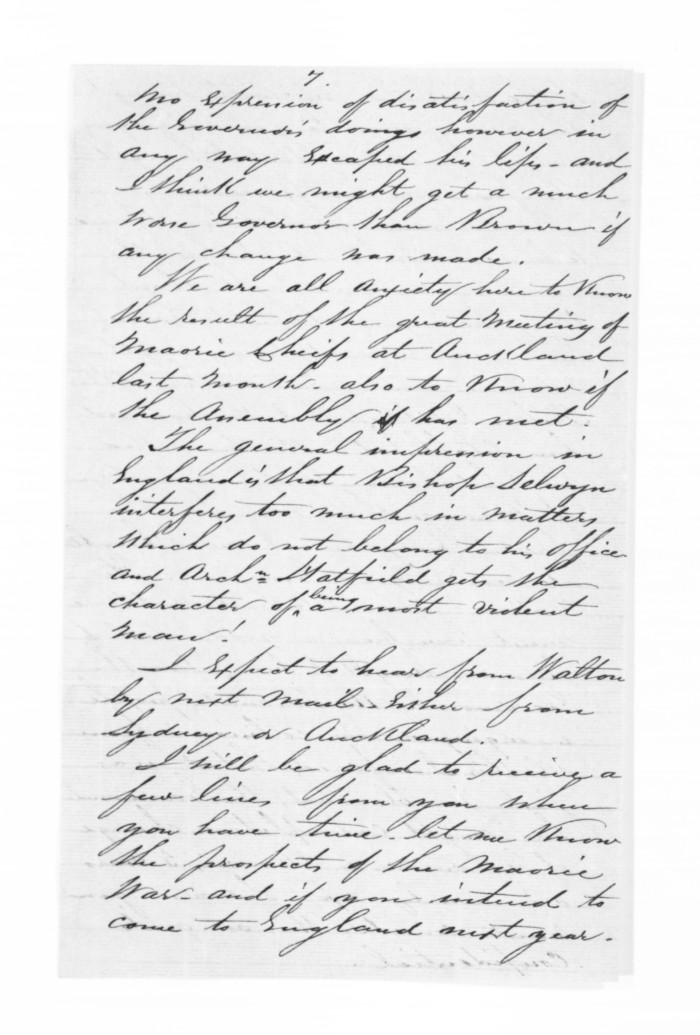 7.
No Expression of disatisfaction of
the Governors doings however in
any way Escaped his lips - and
I think we might get a much
worse Governor than Brown if
any change was made.
We are all anxiety here to Know
the result of the great Meeting of
Maorie Cheifs at Auckland
last Month - also to Know if
the Assembly if has met.
The general impression in
England is that Bishop Selwyn
interferes too much in matters
which do not belong to his office
and Archn Hatfield gets the
character of being a most violent
Man!
I Expect to hear from Walton
by next Mail - Either from
Sydney or Auckland.
I will be glad to receive a
few lines from you when
you have time - let me Know
the prospects of the Maorie
War - and if you intend to
come to England next year.